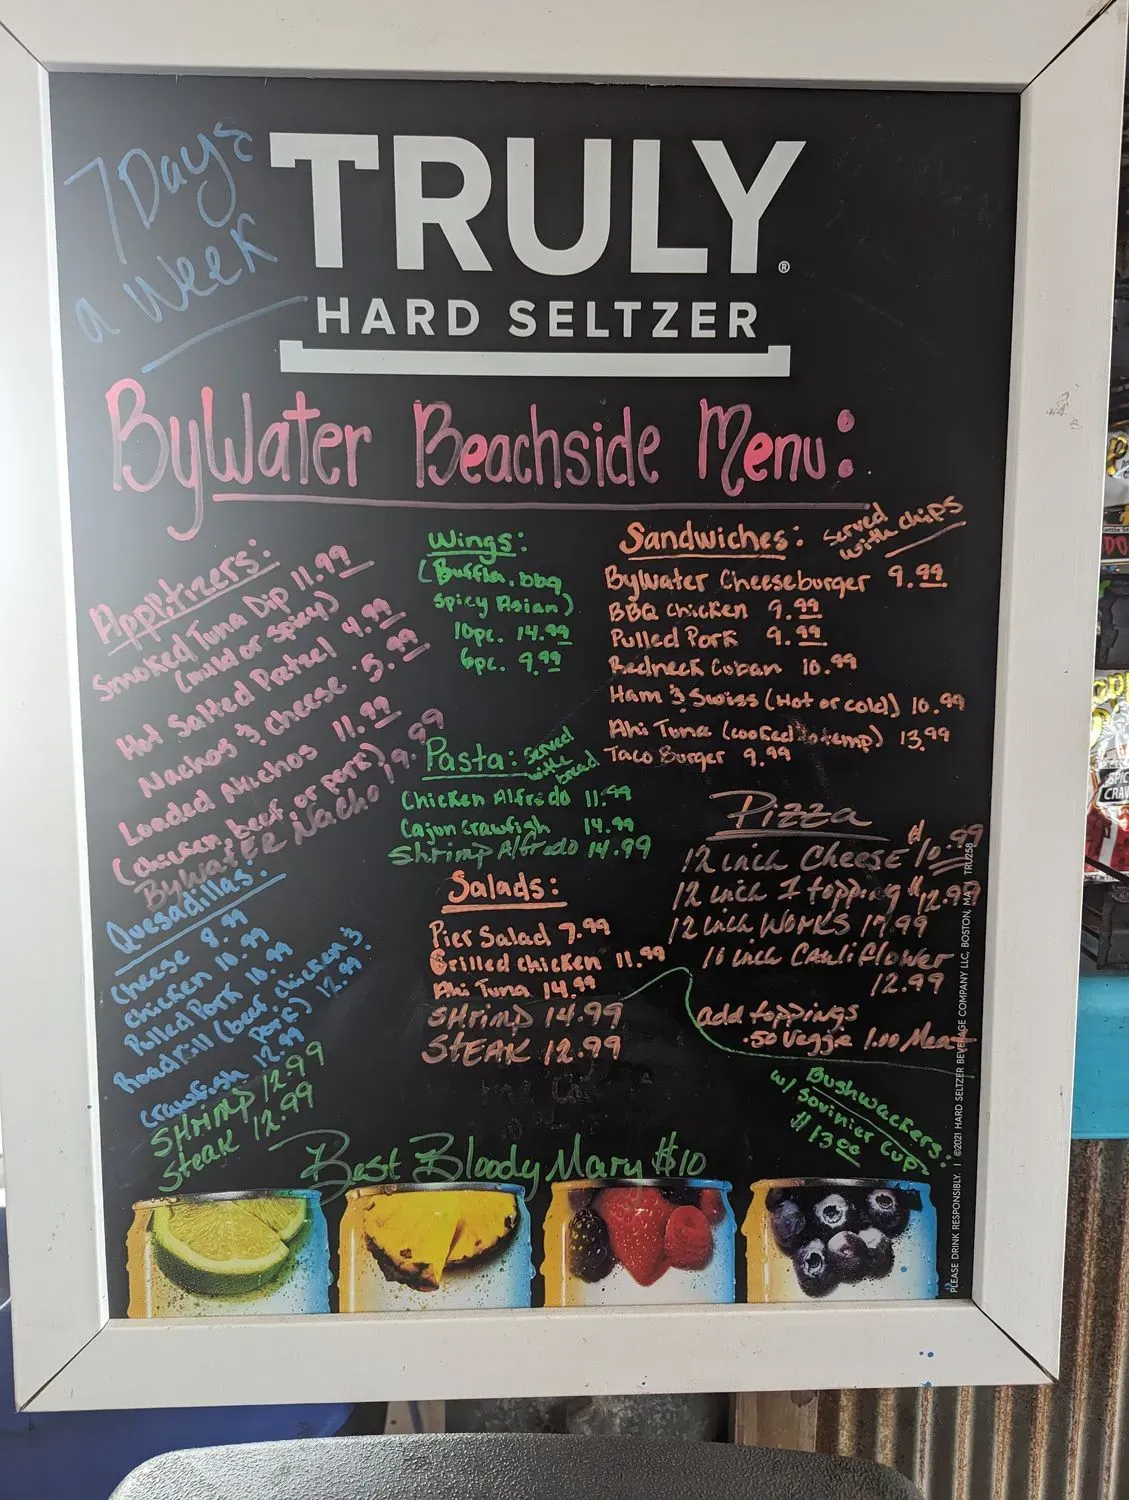 7 Days
a Week
TRULY®
HARD SELTZER
ByWater Beachside Menu:
Apptizers:
Smoked Tuna Dip 11.99
(mild or spicy)
Hot Salted Pretzel 4.99
Nachos & cheese 5.99
Loaded Nachos 11.99
(chicken, beef or pork)
BYWATER Nacho 19.99
Quesadillas:
cheese 8.99
chicken 10.99
Pulled Pork 10.99
Roadkill (beef, chicken &
pork) 12.99
crawfish 12.99
SHrimp 12.99
Steak 12.99
Wings:
(Buffla, bbq
spicy Asian)
10pc. 14.99
6pc. 9.99
Pasta: served
with bread
Chicken Alfredo 11.99
Cajun Crawfish 14.99
Shrimp Alfredo 14.99
Salads:
Pier Salad 7.99
Grilled chicken 11.99
Ahi Tuna 14.99
SHrimp 14.99
STEAK 12.99
Sandwiches: served
with chips
ByWater Cheeseburger 9.99
BBQ Chicken 9.99
Pulled Pork 9.99
Redneck Cuban 10.99
Ham & Swiss (Hot or cold) 10.99
Ahi Tuna (cooked to temp) 13.99
Taco Burger 9.99
Pizza
12 inch Cheese $10.99
12 inch 1 topping $12.99
12 inch WORKS 17.99
10 inch Cauliflower
12.99
add toppings
.50 Veggie 1.00 Meat
Bushwackers:
w/ Sovinier Cup
$13.00
Best Bloody Mary $10
PLEASE DRINK RESPONSIBLY. | ©2021 HARD SELTZER BEVERAGE COMPANY LLC, BOSTON, MA | TRU258